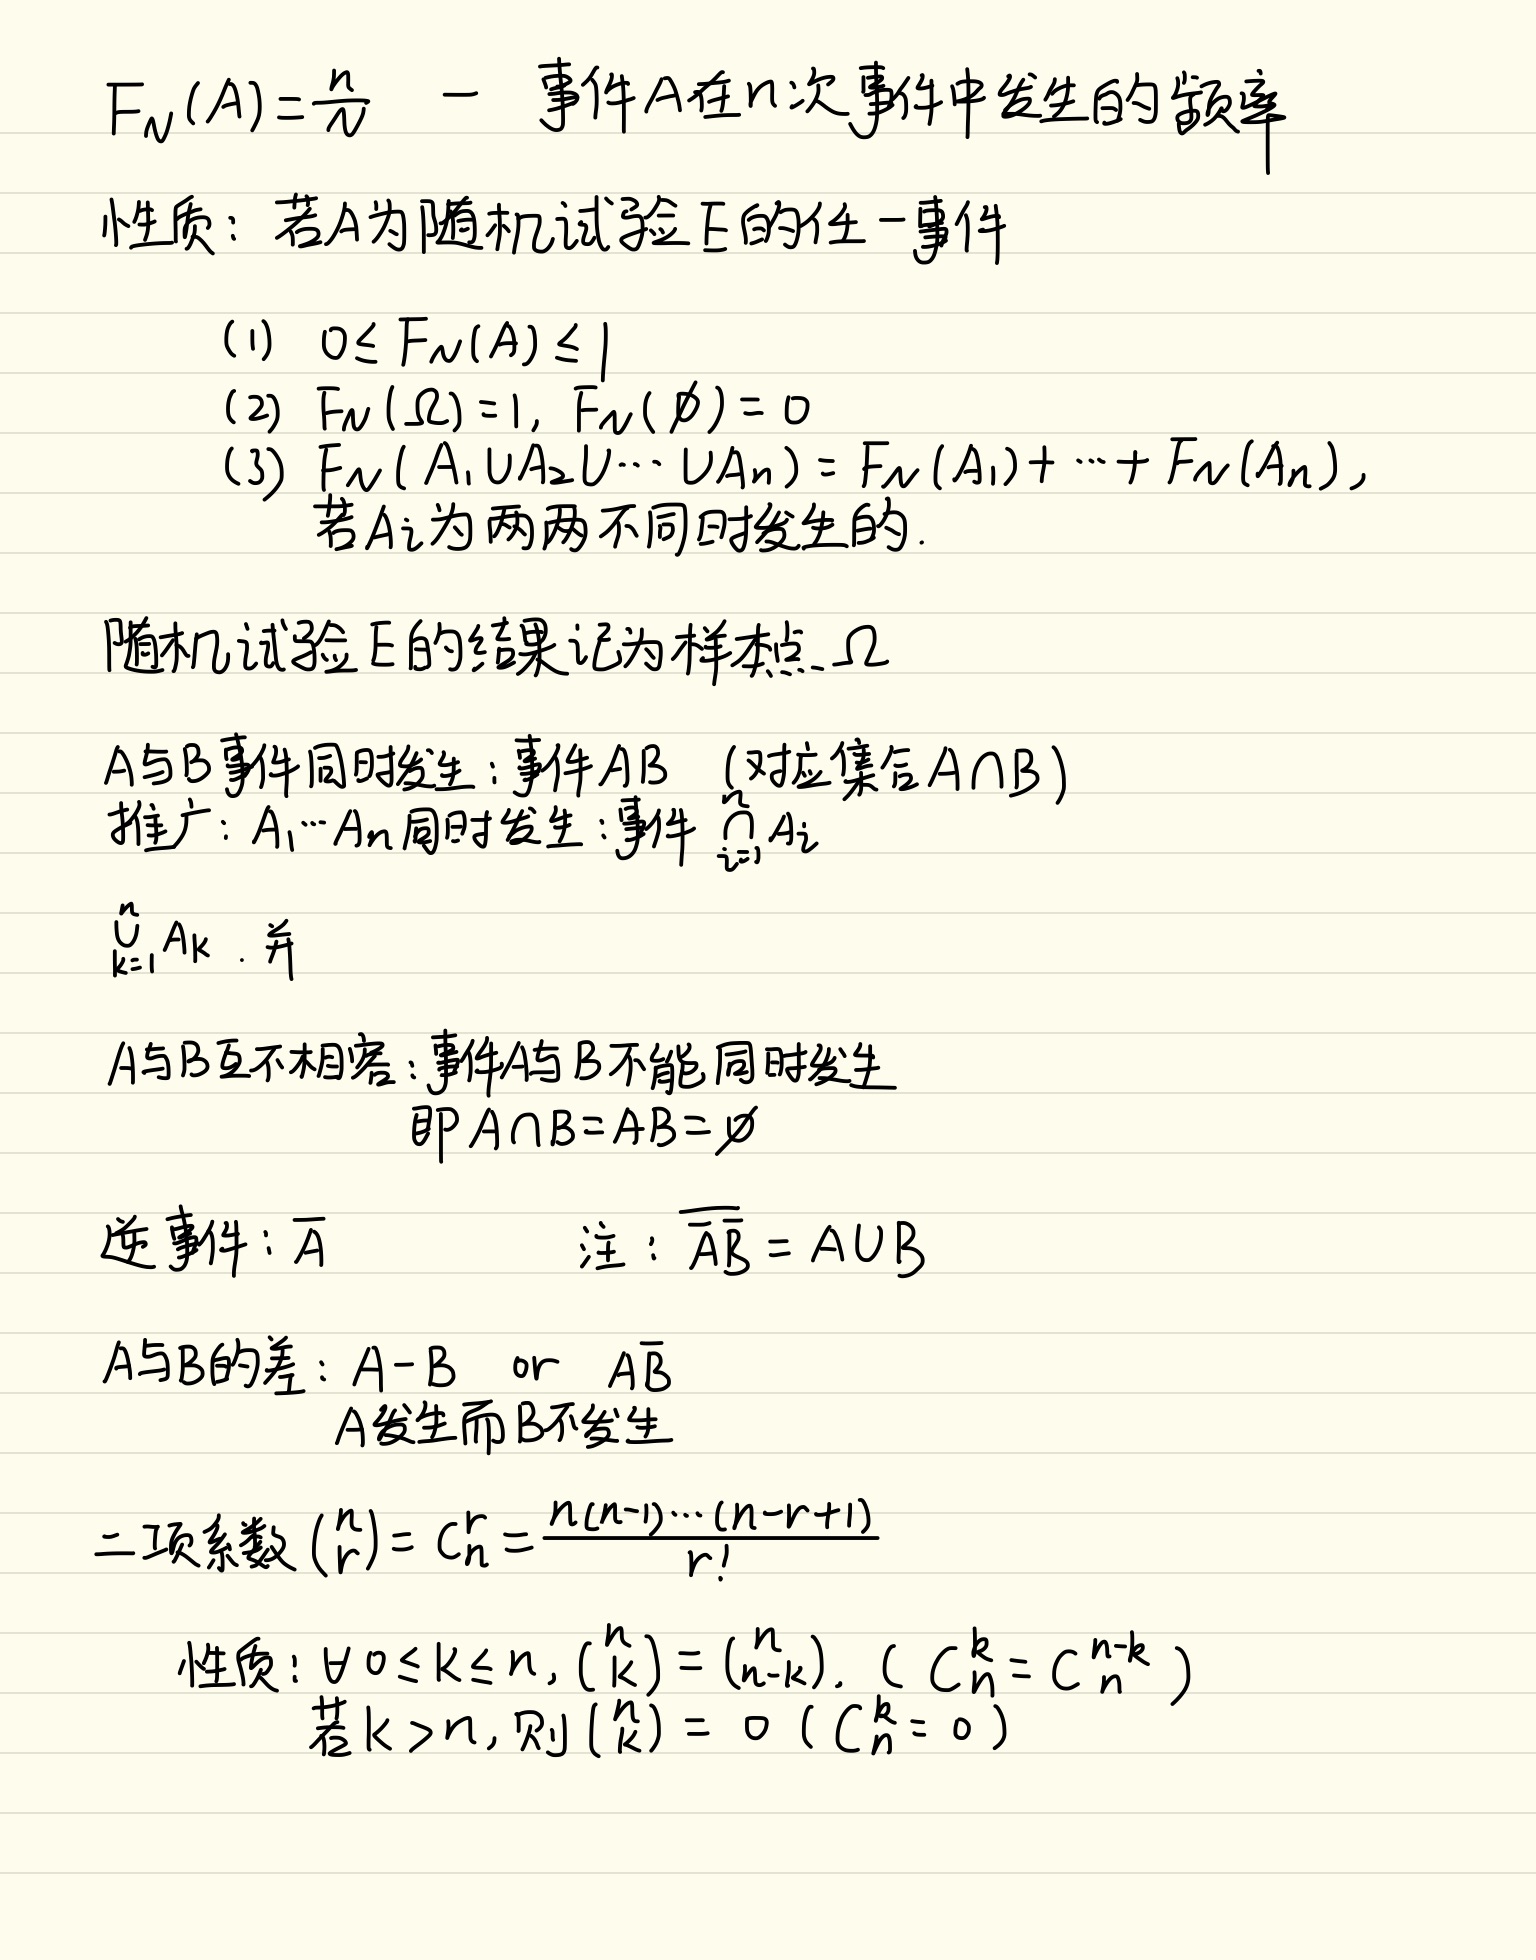 F_N(A) = n/N — 事件A在n次事件中发生的频率
性质: 若A为随机试验E的任一事件
(1) 0 ≤ F_N(A) ≤ 1
(2) F_N(Ω) = 1, F_N(∅) = 0
(3) F_N(A₁∪A₂∪⋯∪Aₙ) = F_N(A₁) + ⋯ + F_N(Aₙ),
若Aᵢ为两两不同时发生的.
随机试验E的结果记为样本点 Ω
A与B事件同时发生: 事件AB (对应集合A∩B)
推广: A₁⋯Aₙ同时发生: 事件 ⋂_{i=1}^{n} Aᵢ
⋃_{k=1}^{n} A_k . 并
A与B互不相容: 事件A与B不能同时发生
即 A∩B = AB = ∅
逆事件: A̅ 注: \overline{\overline{A}\,\overline{B}} = A∪B
A与B的差: A−B or AB̅
A发生而B不发生
二项系数 \binom{n}{r} = C_n^r = \frac{n(n-1)⋯(n-r+1)}{r!}
性质: ∀ 0 ≤ k ≤ n, \binom{n}{k} = \binom{n}{n-k}. (C_n^k = C_n^{n-k})
若k > n, 则 \binom{n}{k} = 0 (C_n^k = 0)